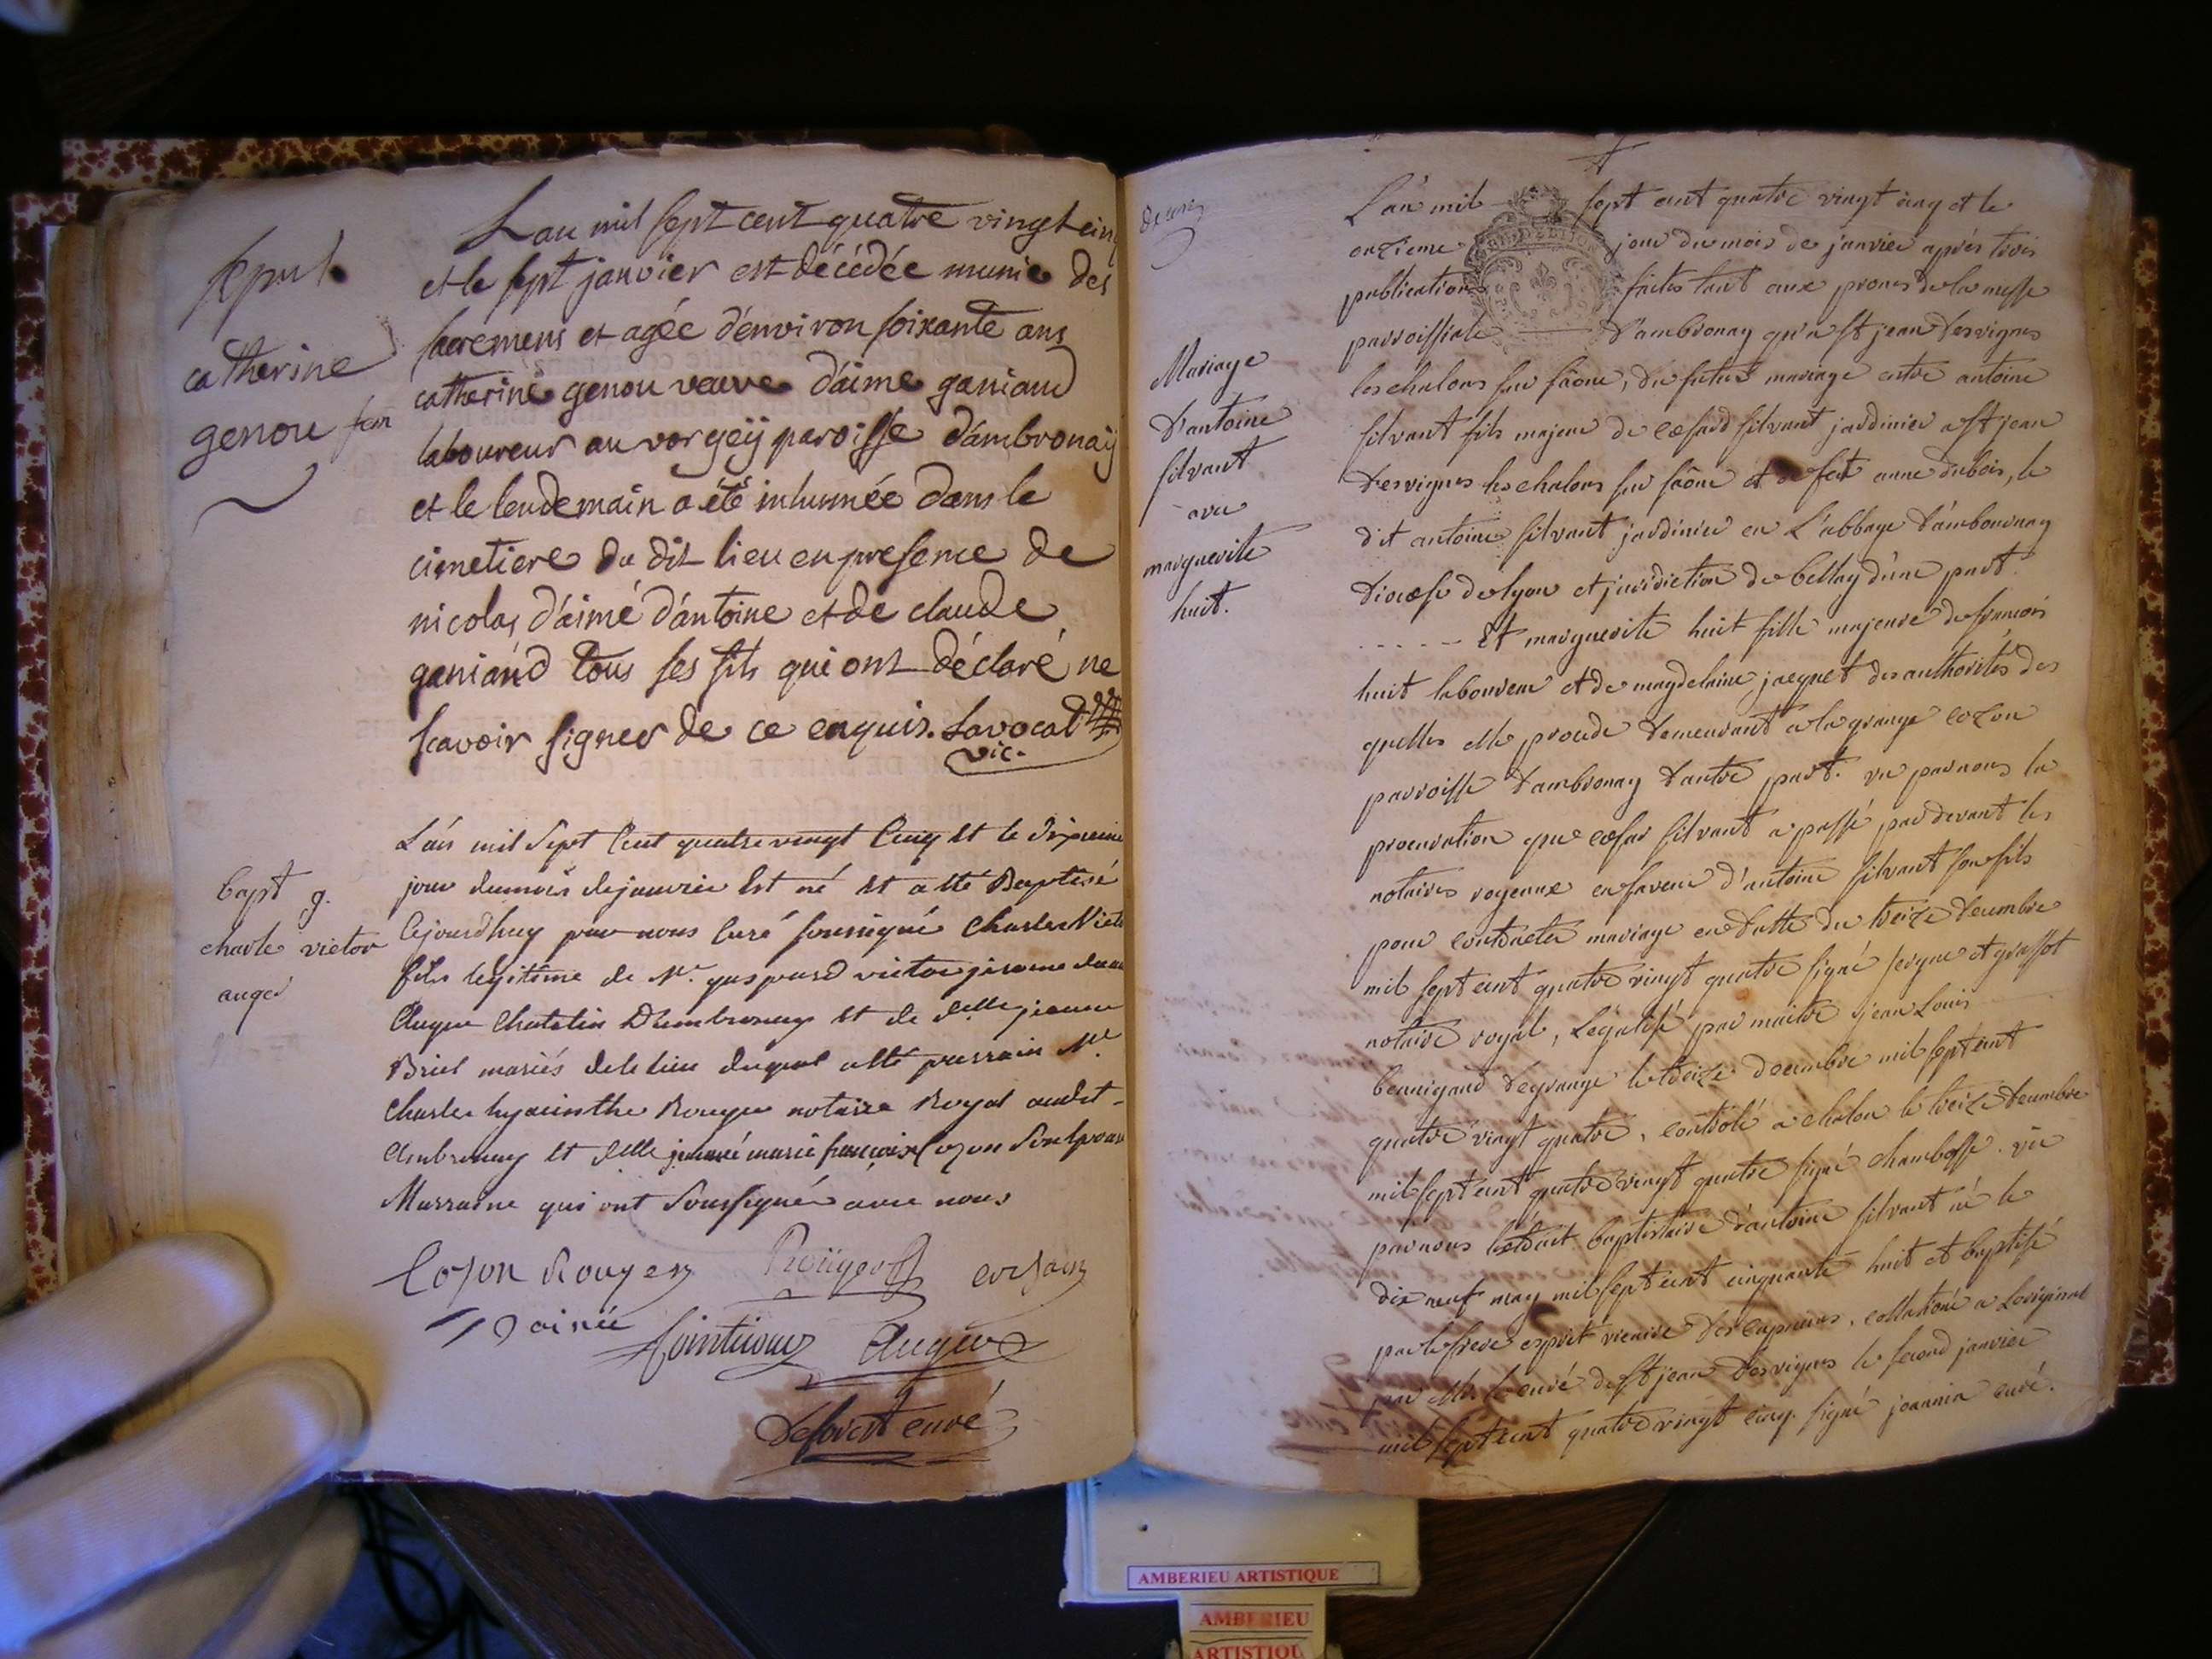 sepult
catherine
genou fem
Lan mil sept cent quatre vingt cinq
et le sept janvier est décédée munie des
sacremens et agée d'environ soixante ans
catherine genou veuve d'aimé ganiand
laboureur au vorgeÿ paroisse d'ambronaÿ
et le lendemain a été inhumée dans le
cimetiere du dit lieu en presence de
nicolas d'aimé d'antoine et de claude
ganiand tous ses fils qui ont déclaré ne
scavoir signer de ce enquis. Lavocat
vic.
bapt g.
charle victor
auger
L'an mil sept Cent quatre vingt Cinq Et le
jour du mois de janvier Est né Et a été Baptisé
Cejourdhuy par nous Curé soussigné Charles Victor
fils legitime de Mr. gaspard victor jerome
Auger Chatelin D'ambronay Et de delle jeanne
Briel mariés dele lieu duquel a été parrain Mr.
Charles hyacinthe Rouyer notaire Royal audit
Ambronay Et delle marie françoise Cozon Son Epouse
Marraine qui ont Soussignés avec nous
Cozon Rouyer Rouyer
Auger
Deforest curé
Mariage
d'antoine
silvant
avec
marguerite
huit.
L'an mil sept cent quatre vingt cinq et le
onzieme jour du mois de janvier aprés trois
publications faites tant aux prones de la messe
parroissiale d'ambronay qu'a st jean desvignes
les chalons sur saône, du futur mariage entre antoine
silvant fils majeur de cesard silvant jardinier a st jean
desvignes les chalons sur saône et de fut anne dubois, le
dit antoine silvant jardinier en L'abbaye d'ambournay
diocese de lyon et jurisdiction de bellay d'une part
..... Et marguerite huit fille majeure de francois
huit laboureur et de magdelaine jacquet des authorités des
quelles elle procede demeurant a la grange cozon
parroisse d'ambronay d'autre part. vu par nous la
procuration que cesar silvant a passé par devant les
notaires royeaux en faveur d'antoine silvant son fils
pour contracter mariage en datte du treize decembre
mil sept cent quatre vingt quatre signé et grassot
notaire royal, Légalisé par maitre jean Louis
bennigaud degrange le treize decembre mil sept cent
quatre vingt quatre, controlé a chalon le treize decembre
mil sept cent quatre vingt quatre signé chambosse. vu
par nous l'extrait baptistaire d'antoine silvant né le
dix neuf may mil sept cent cinquante huit et baptisé
par le frere esprit vicaire des capucins, collationé a Loriginal
par Mr. le curé de st jean desvignes le second janvier
mil sept cent quatre vingt cinq. signé joannin curé.
AMBERIEU ARTISTIQUE
AMBERIEU
ARTISTIQU